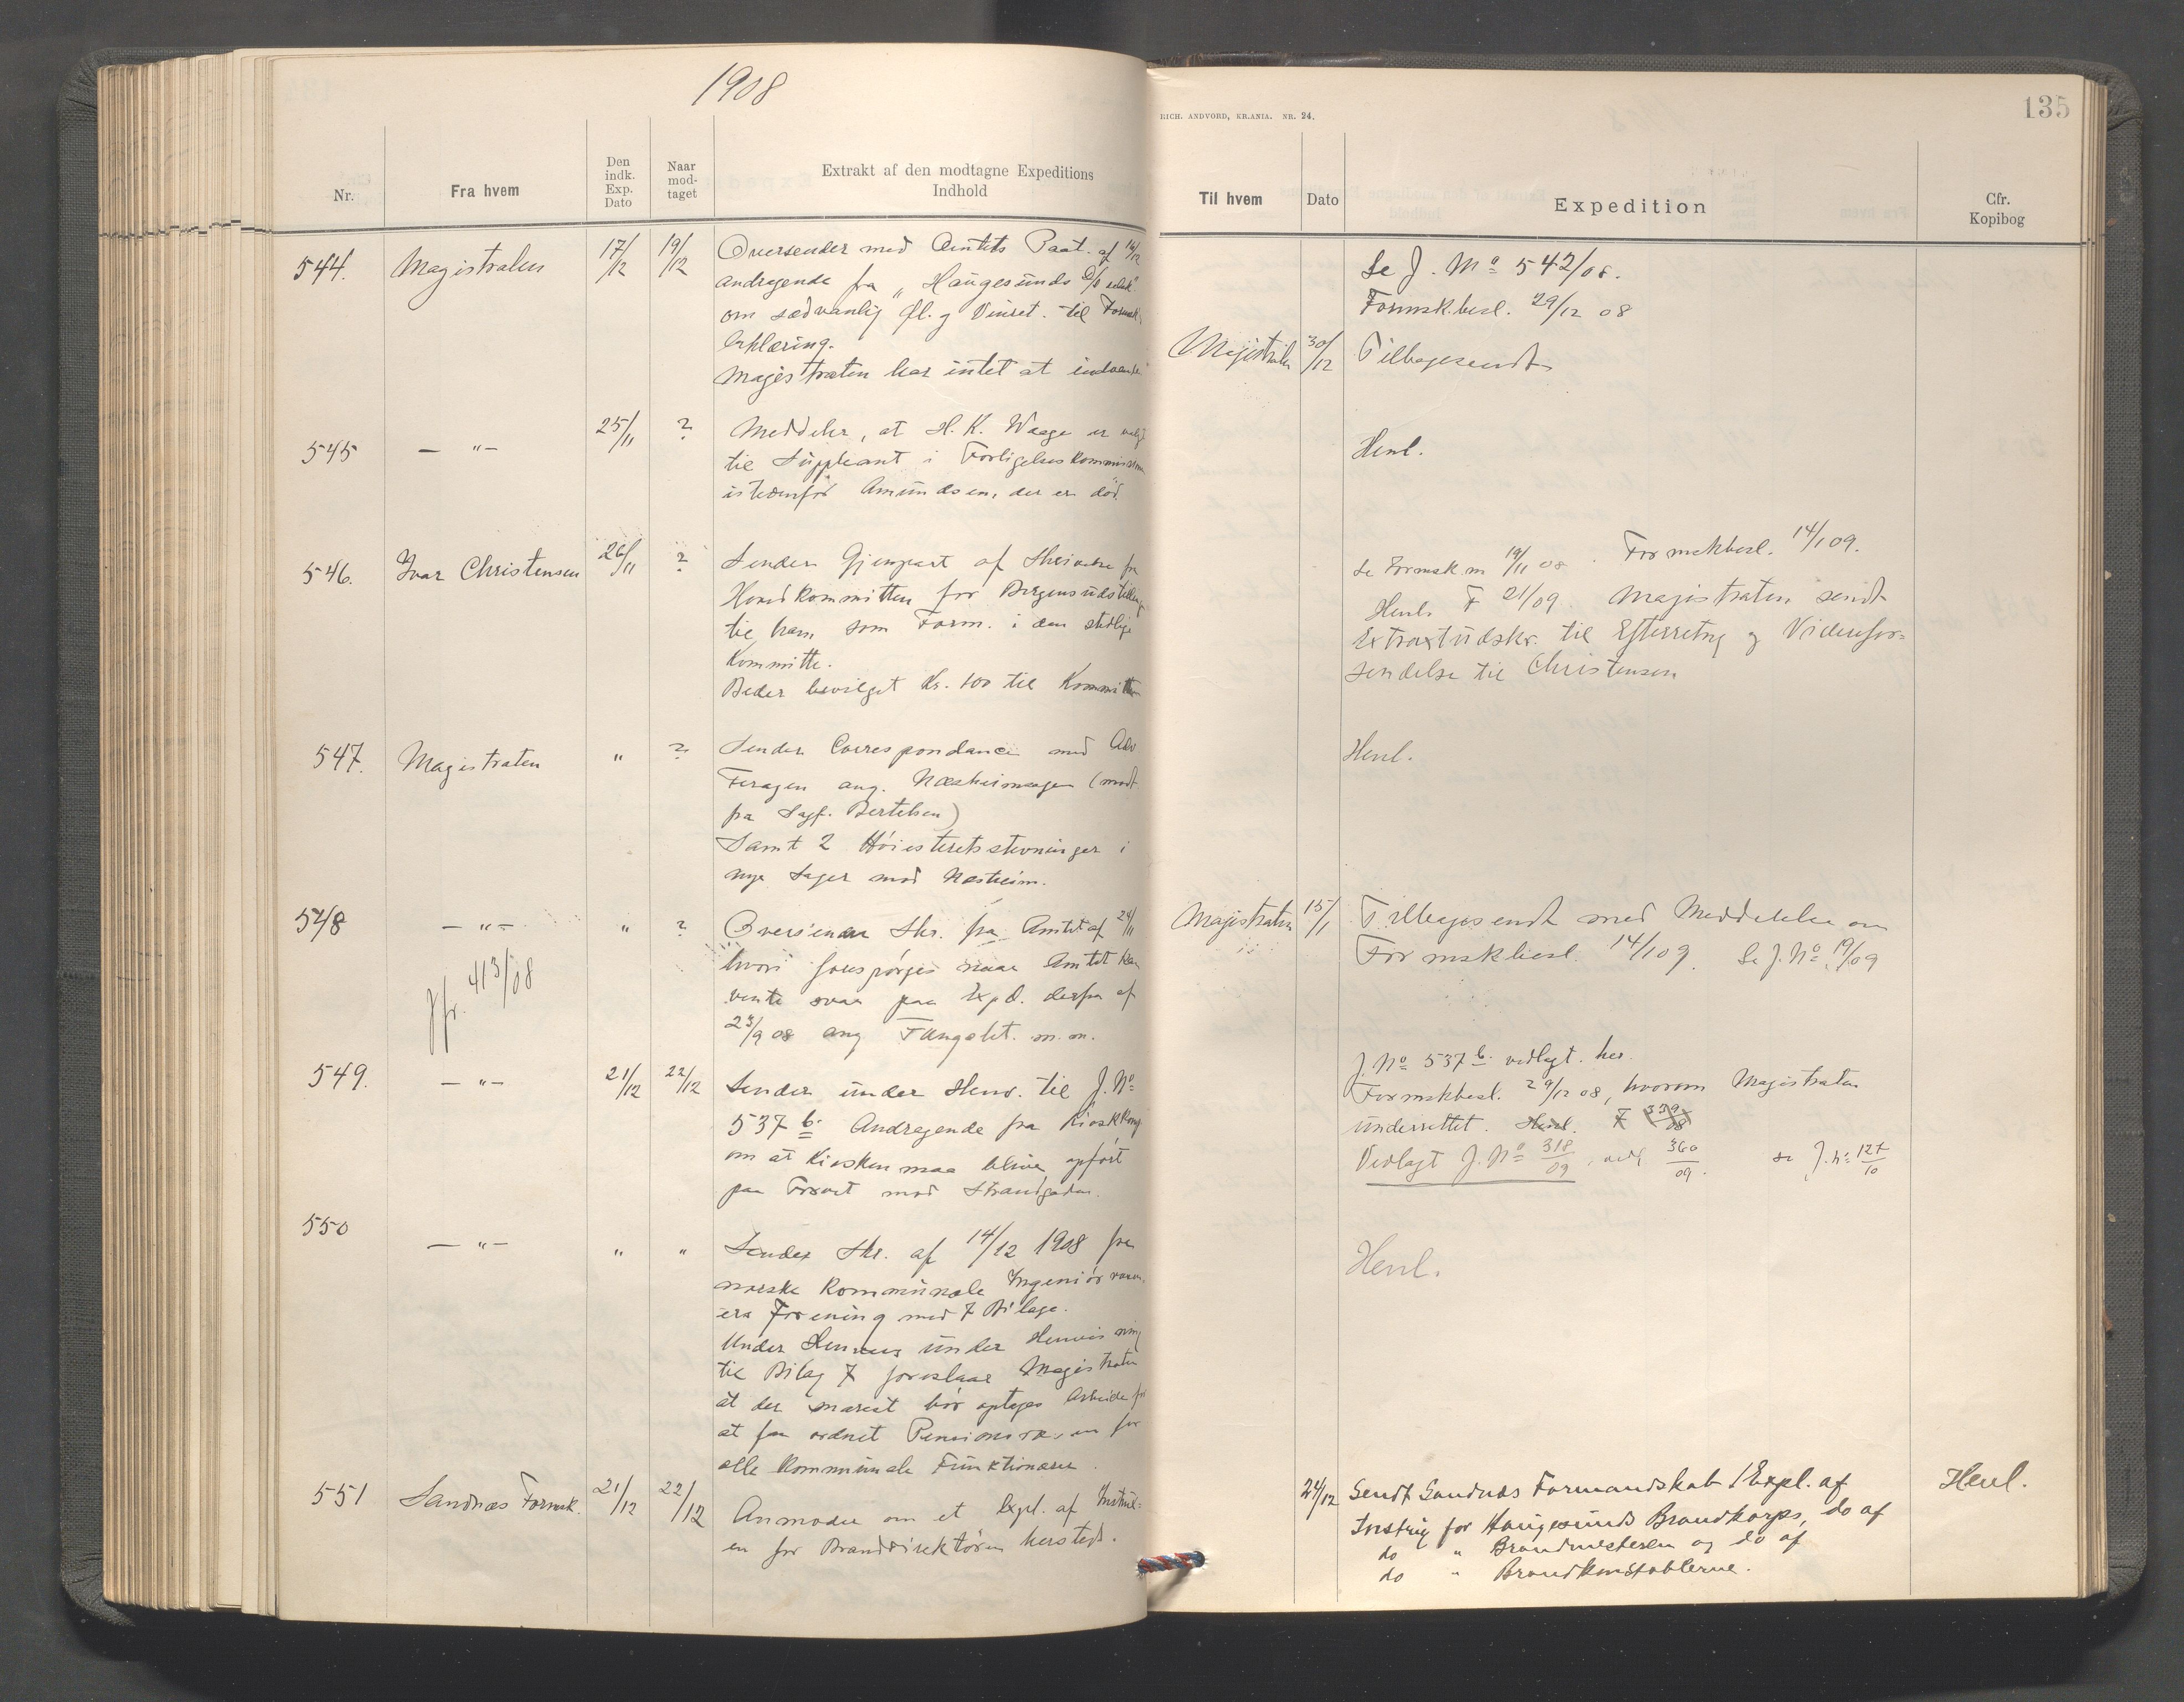 1908
Nr.
Fra hvem
Den indk. Exp. Dato
Naar mod-taget
Extrakt af den modtagne Expeditions
Indhold
544. Magistraten 17/12 19/12 Oversender med Amtets Paat. af
andragende fra „Haugesunds
om sædvanlig Øl. og Vinret. til Formsk.
Erklæring.
Magistraten har intet at indvende
545 — „ — 25/11 ? Meddeler, at H. K. Waage er valgt
til Suppleant i Forligelseskommissionen
istedenfor Amundsen, der er död.
546. Ivar Christensen 26/11 ? Sender Gjenpart af Skrivelse fra
Hovedkommitteen for Bergensudstilling
til ham som Form. i den stedlige
Kommitte.
Beder bevilget Kr. 100 til Kommitteen
547. Magistraten „ ? Sender Correspondance med Adv
Feragen ang. (modt
fra Sagf. Bertelsen)
Samt 2 Höiesteretsstevninger i
nye Sager mod Næsheim.
548 — „ — „ ? Oversender Skr. fra Amtet af 24/11
Jfr. 413/08
hvori forespörges naar Amtet kan
vente svar paa Exp. derfra af
23/9 08 ang m.m.
549. — „ — 21/12 22/12 Sender under Henv. til J. No
537 b. Andragende fra Kioskkomp
om at Kiosken maa blive opfört
paa Torvet mod Strandgaden.
550 — „ — „ „ Sender Skr. af 14/12 1908 fra
norske kommunale Ingeniörvæsen-
ers Forening med 7 Bilage.
Under Henvisning
til Bilag 7 foreslaar Magistraten
at der snarest bör optages Arbeide for
at faa ordnet for
alle kommunale Funktionærer.
551 Sandnæs Formsk. 21/12 22/12 Anmoder om et Expl. af Instrux-
en for Branddirektören hersteds.
RICH. ANDVORD, KR.ANIA. NR. 24.
135
Til hvem
Dato
Expedition
Cfr.
Kopibog
Se J. No 542/08.
Formsk.besl. 29/12 08
Magistraten 30/12 Tilbagesendt
Henl.
Se Formsk.m 19/11 08. Formskbesl. 14/1 09.
Henl. F 21/09 Magistraten sendt
Extraktudskr. til Efterretng og Viderefor-
sendelse til Christensen
Henl.
Magistraten 15/1 Tilbagesendt med Meddelelse om
Formskbesl. 14/1 09. Se J. No 19/09
J. No 537 b. vedlagt. her.
Formskbesl. 29/12 08, hvorom Magistraten
underrettet. Henl. F 339/08
Vedlagt J. No 318/09, vedl 360/09. se J. No 127/10
Henl.
24/12 Sendt Sandnæs Formandskab 1 Expl. af
Instrux for Haugesunds Brandkorps, do af
do „ Brandmesteren og do af
do „ Brandkonstablerne.
Henl.